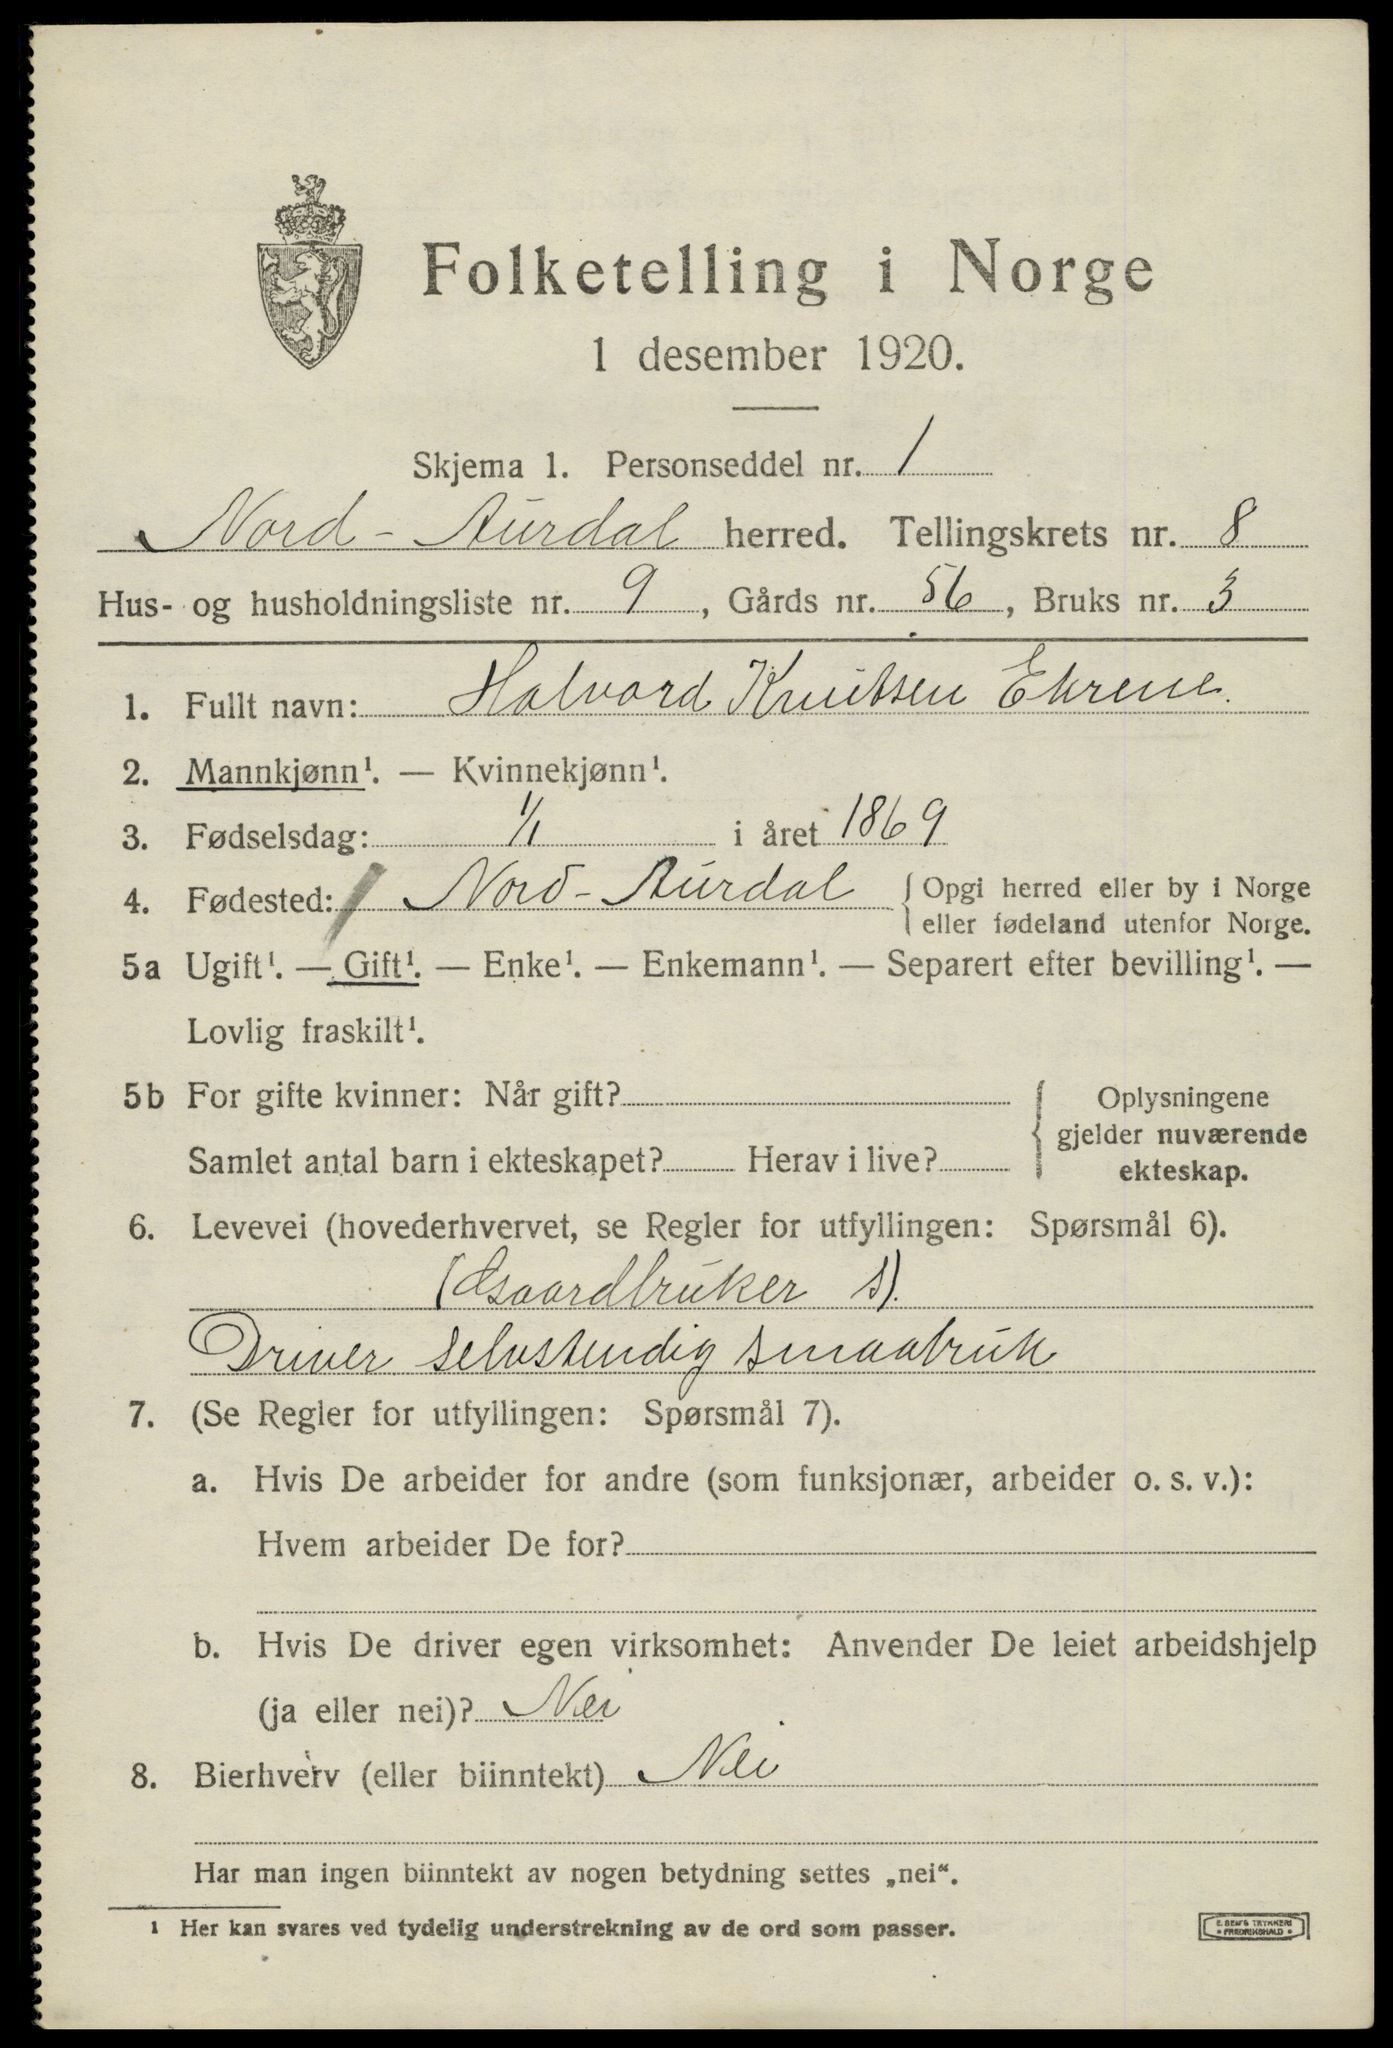 Folketelling i Norge
1 desember 1920.
Skjema 1. Personseddel nr. 1
Nord-Aurdal herred. Tellingskrets nr. 8
Hus- og husholdningsliste nr. 9, Gårds nr. 56, Bruks nr. 3
1. Fullt navn: Halvord Knutsen Ekrene.
2. Mannkjønn¹. — Kvinnekjønn¹.
3. Fødselsdag: 1/1 i året 1869
4. Fødested: Nord-Aurdal { Opgi herred eller by i Norge
eller fødeland utenfor Norge.
5a Ugift¹. — Gift¹. — Enke¹. — Enkemann¹. — Separert efter bevilling¹. —
Lovlig fraskilt¹.
5b For gifte kvinner: Når gift? { Oplysningene
gjelder nuværende
Samlet antal barn i ekteskapet? Herav i live?
ekteskap.
6. Levevei (hovederhvervet, se Regler for utfyllingen: Spørsmål 6).
(Gaardbruker s).
Driver selvstendig smaabruk
7. (Se Regler for utfyllingen: Spørsmål 7).
a. Hvis De arbeider for andre (som funksjonær, arbeider o. s. v.):
Hvem arbeider De for?
b. Hvis De driver egen virksomhet: Anvender De leiet arbeidshjelp
(ja eller nei)? Nei
8. Bierhverv (eller biinntekt) Nei
Har man ingen biinntekt av nogen betydning settes „nei“.
¹ Her kan svares ved tydelig understrekning av de ord som passer.
E. SEM'S TRYKKERI
• FREDRIKSHALD •